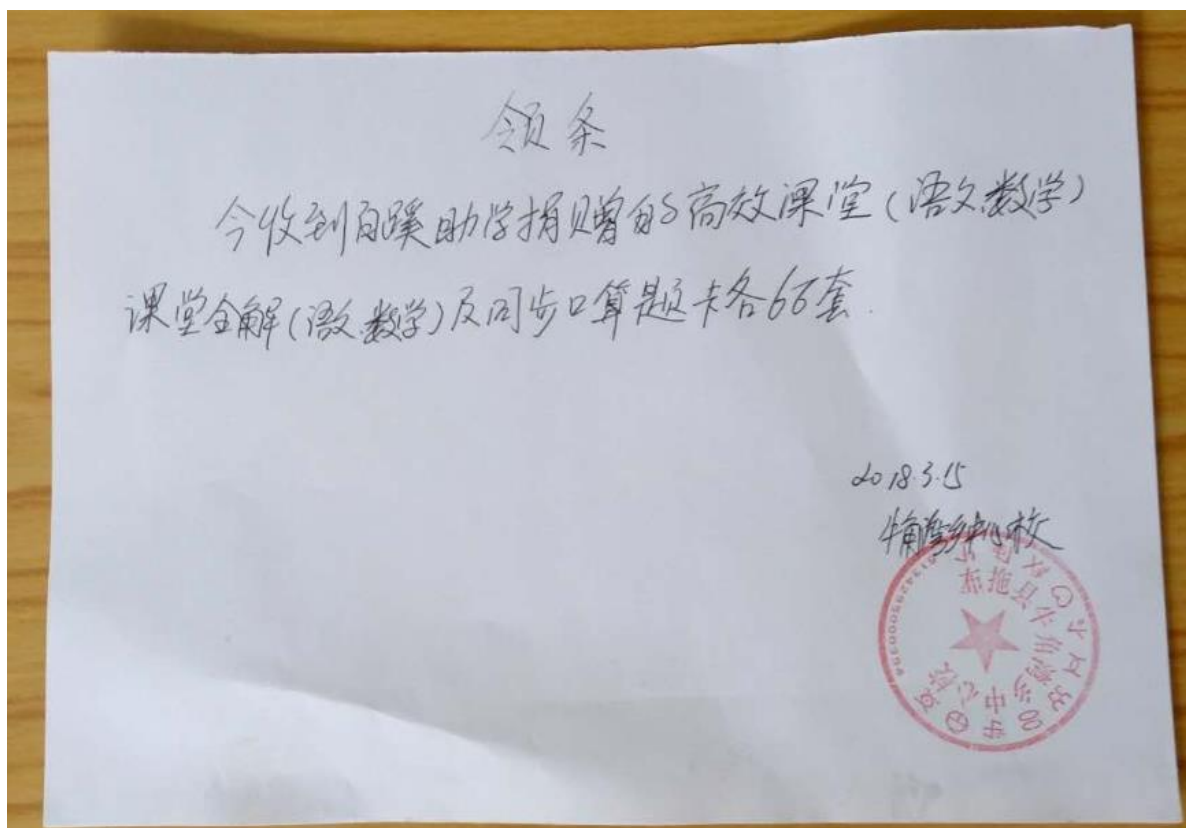 领条
今收到白蹊助学捐赠的5高效课堂(语文.数学)
课堂全解(语文.数学)及同步口算题卡各66套.
2018.3.15
牛角湾乡中心校
布拖县牛角湾乡中心校